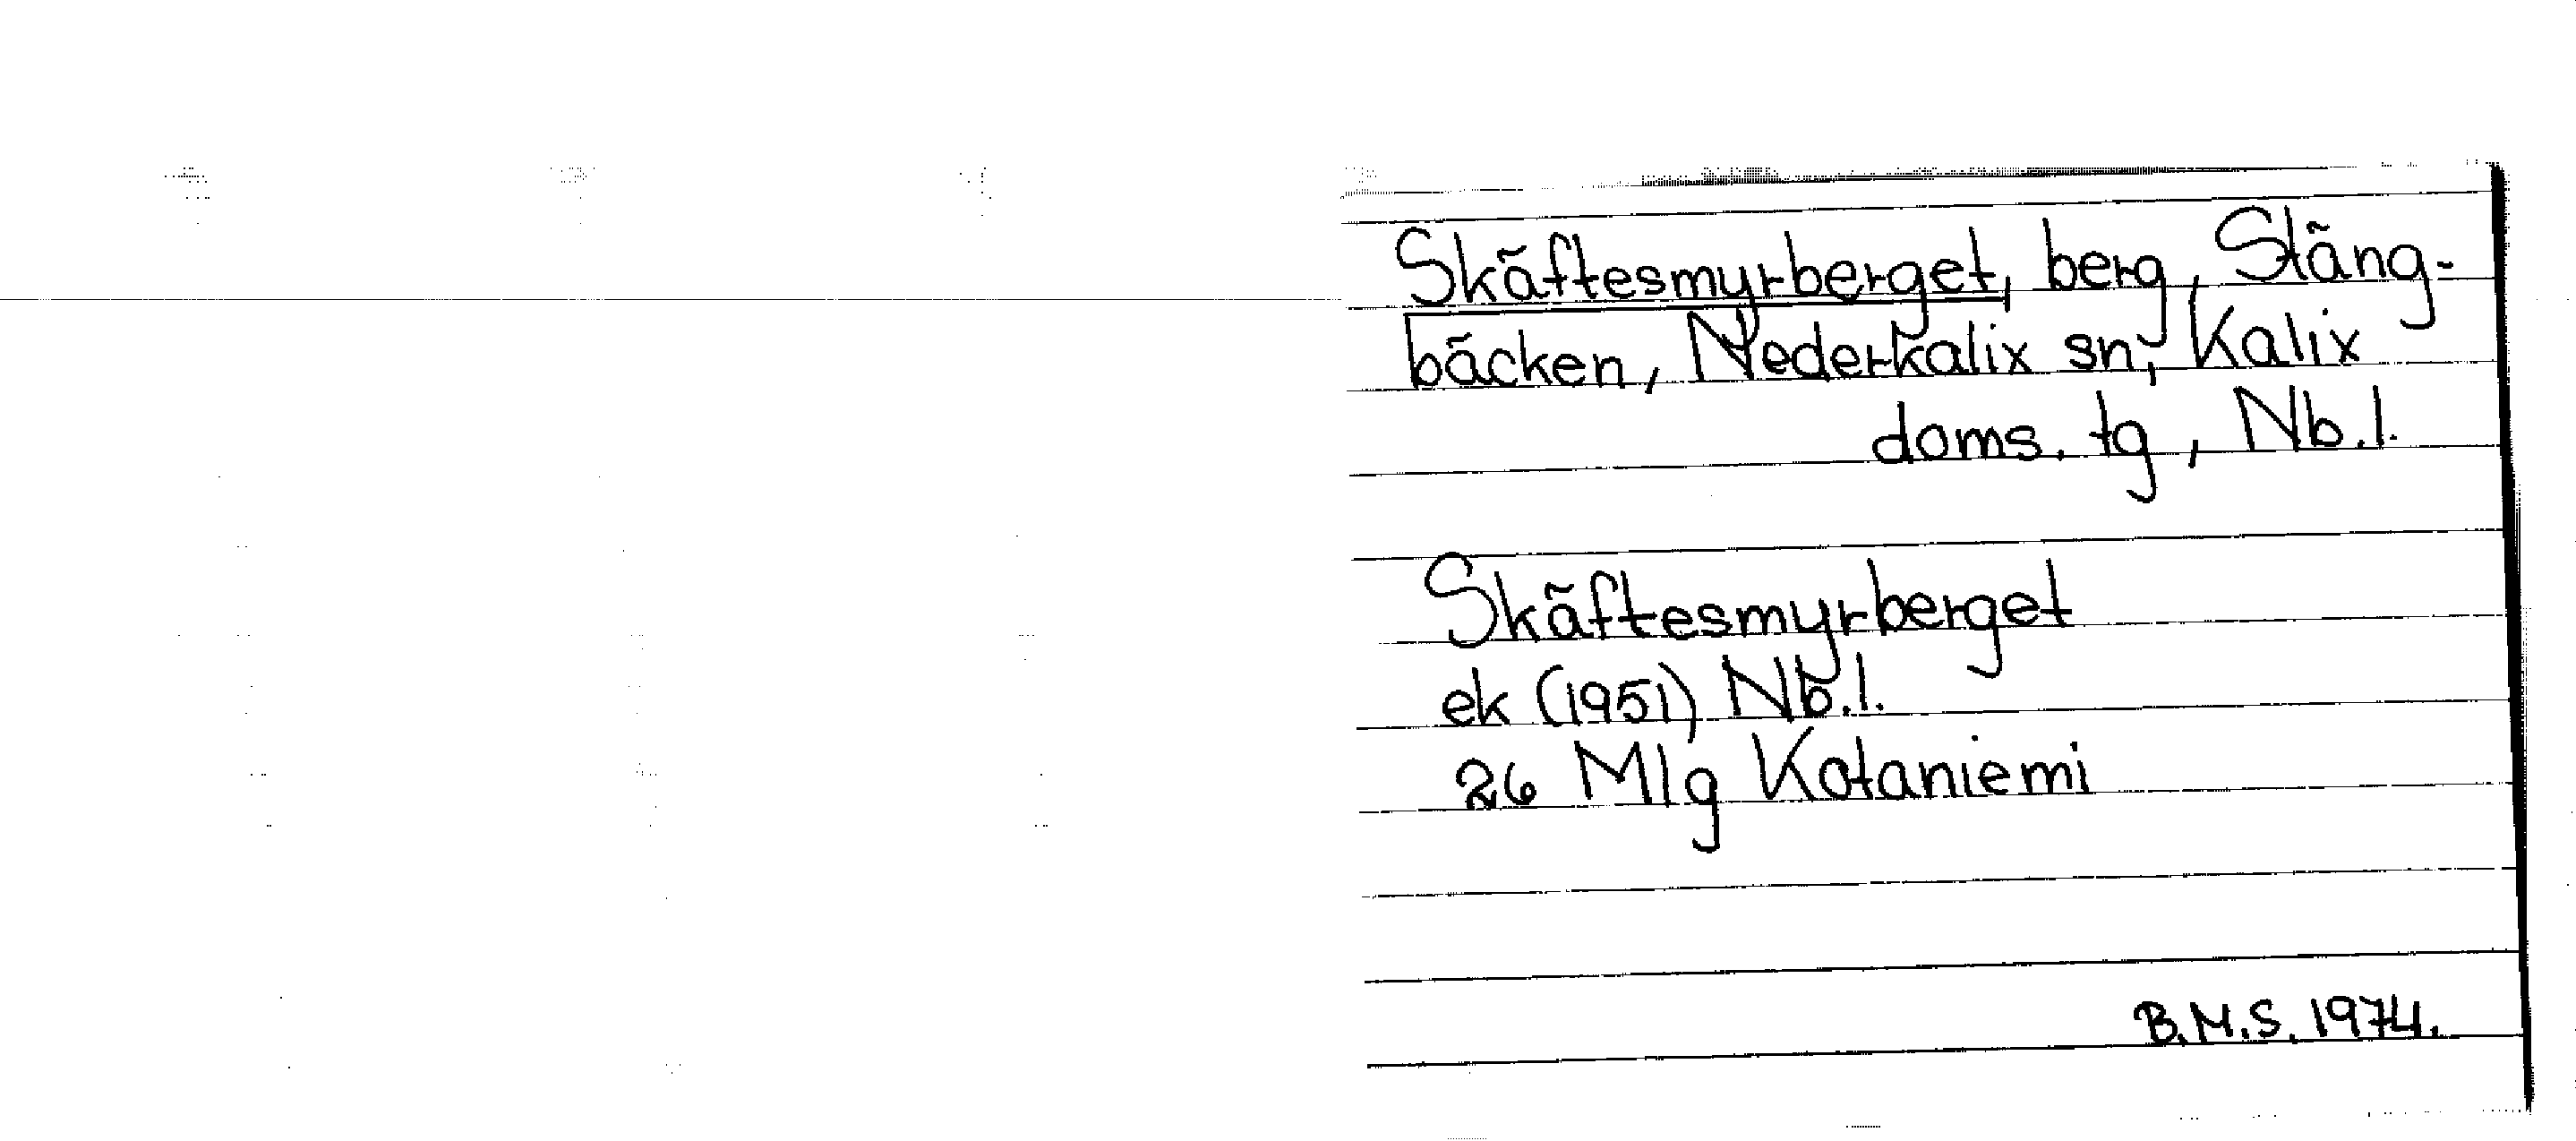 Skäftesmyrberget, berg, Stäng-
bäcken, Nederkalix sn, Kalix
doms. tg, Nb.l.
Skäftesmyrberget
ek (1951) Nb.l.
26 Mlg Kotaniemi
B.M.S. 1974.